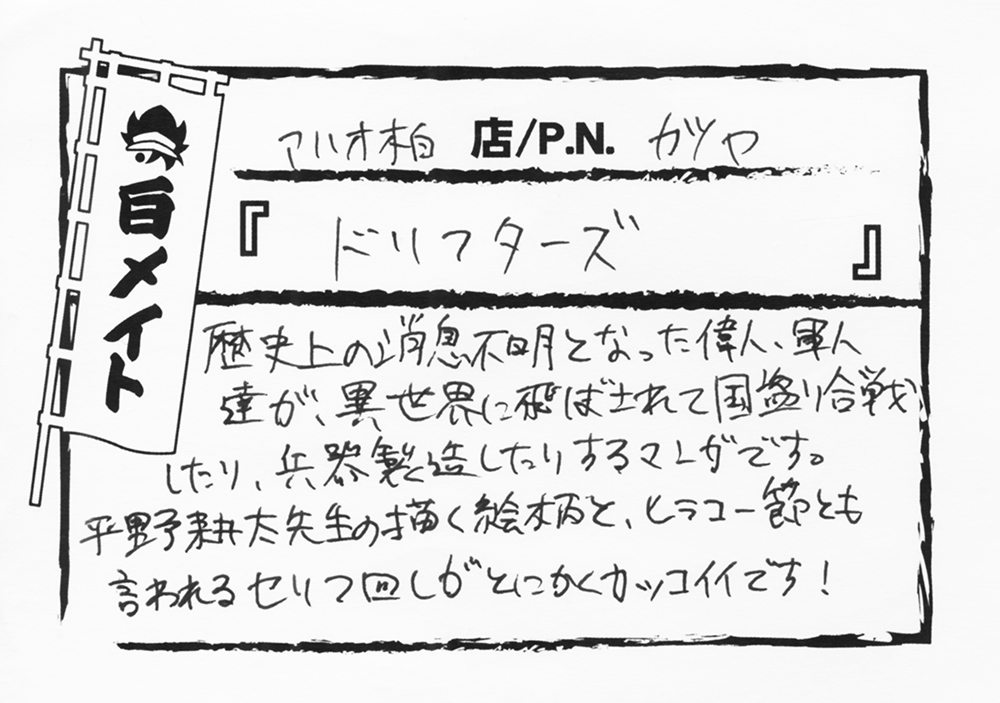 アリオ柏 店/P.N. ガツヤ
盲メイト
『ドリフターズ』
歴史上の消息不明となった偉人、軍人
達が、異世界に飛ばされて国盗り合戦
したり、兵器製造したりするマンガです。
平野耕太先生の描く絵柄と、ヒラコー節とも
言われるセリフ回しがとにかくカッコイイです!